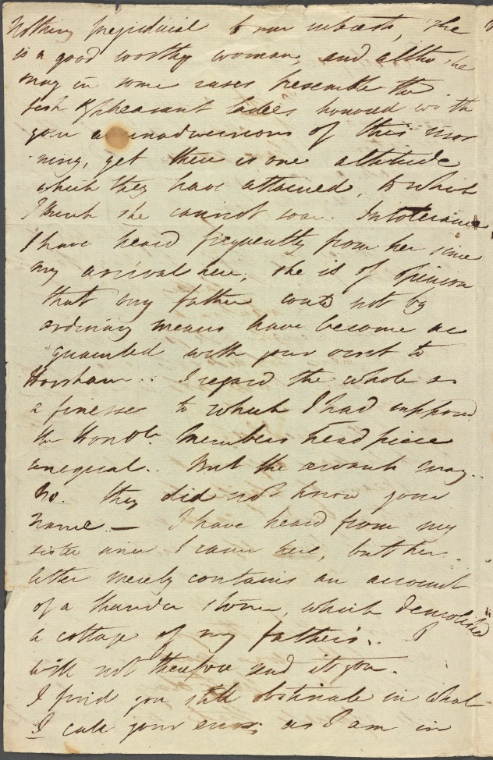 Nothing prejudicial to our interests, she
is a good worthy woman, and altho she
may in some cases resemble the
fish & pheasant ladies honored with
your animadversions of this mor
-ning, yet there is one altitude
which they have attained, to which
I think she cannot soar. Intolerance
I have heard frequently from her since
my arrival here, she is of opinion
that my father could not by
ordinary means have become ac
quainted with your visit to
Horsham.. I regard the whole as
a finesse to which I had supposed
the Honble. Members head piece
unequal.. But the servants may..
No. they did not know your
name.— I have heard from my
sister since I came here, but her
letter merely contains an account
of a thunder storm, which demolished
a cottage of my fathers.. I
will not therefore send it you.
I find you still obstinate in what
I call your error, as I am in